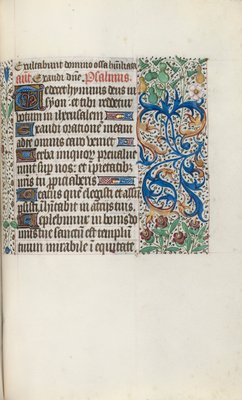 Exultabunt domino ossa humiliata
ant Exaudi dne Psalmus
Te decet hymnus deus in
syon: et tibi reddetur
votum in iherusalem
Exaudi orationē meam
ad te omnis caro veniet
Verba iniquorp prevalue
runt sup nos: et ipietatib
nris tu ppiciaberis
Beatus quē elegisti et assūp
sisti: īhitabit in atriis tuis
Replebimur in bonis do
mus tue sanctū est templū
tuum mirabile ī equitate